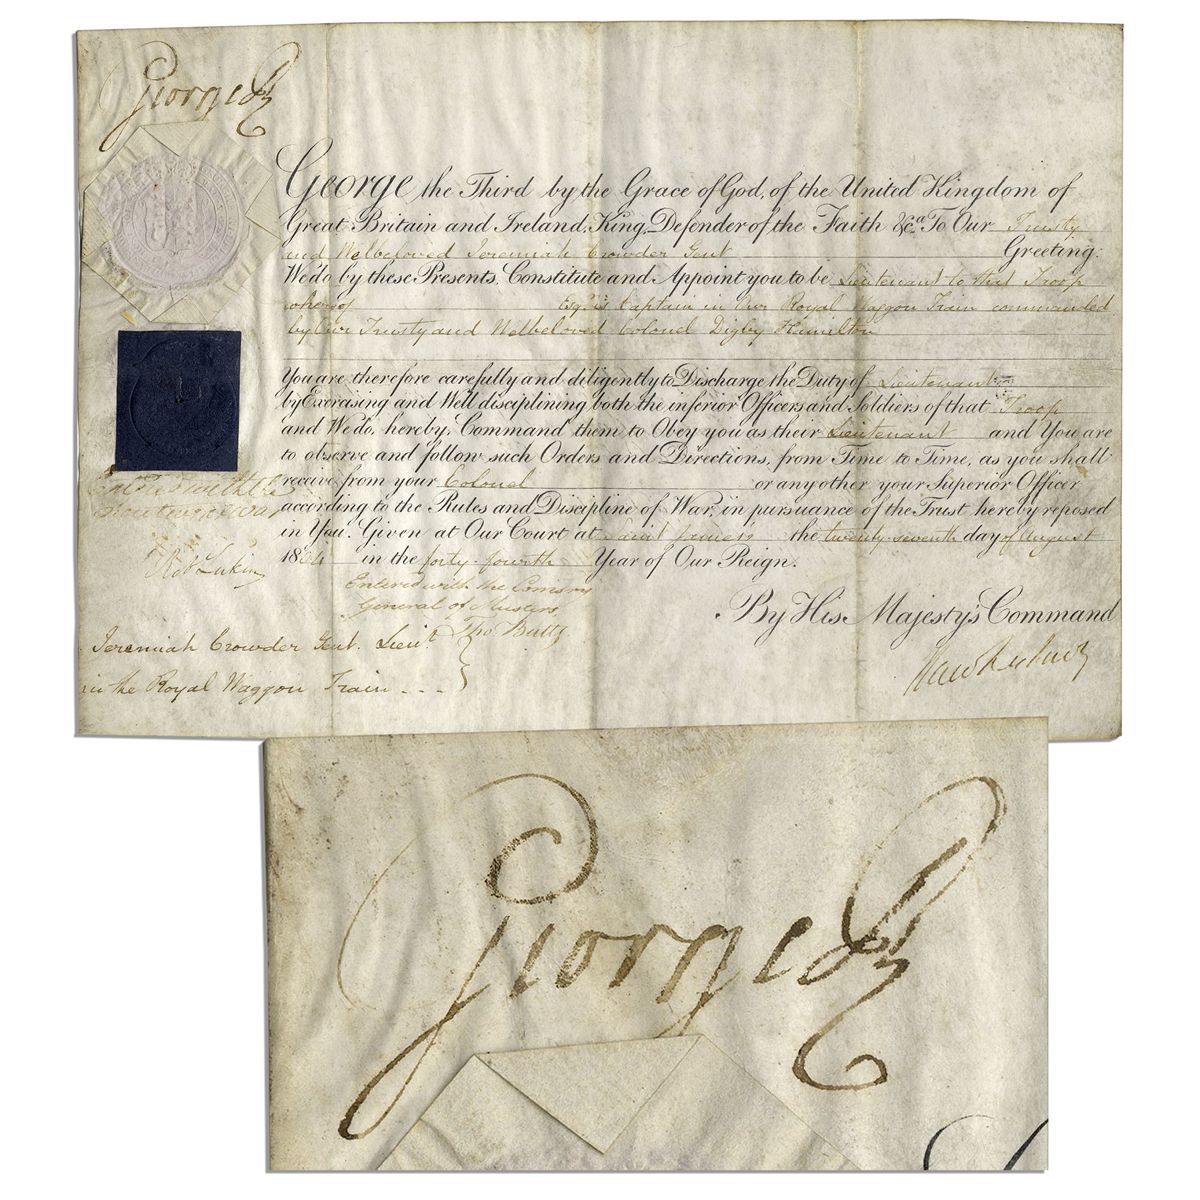 George R
George the Third by the Grace of God, of the United Kingdom of
Great Britain and Ireland, King, Defender of the Faith &c.a To Our Trusty
and Welbeloved Jeremiah Crowder Gent Greeting:
We do by these Presents, Constitute and Appoint you to be Lieutenant to that Troop
whereof Esq.r is Captain in Our Royal Waggon Train commanded
by Our Trusty and Welbeloved Colonel Digby Hamilton
You are therefore carefully and diligently to Discharge the Duty of Lieutenant
by Exercising and Well disciplining both the inferior Officers and Soldiers of that Troop
and We do, hereby, Command them to Obey you as their Lieutenant and You are
to observe and follow such Orders and Directions, from Time to Time, as you shall
receive from your Colonel or any other your Superior Officer
according to the Rules and Discipline of War, in pursuance of the Trust hereby reposed
in You. Given at Our Court at Saint James's the twenty-seventh day of August
1804 in the forty-fourth Year of Our Reign.
By His Majesty's Command
Hawkesbury
Entered with the
Secretary at War
Rob Lukin
Entered with the Comsry
General of Musters
Tho Butts
Jeremiah Crowder Gent. Lieut.
in the Royal Waggon Train
George R